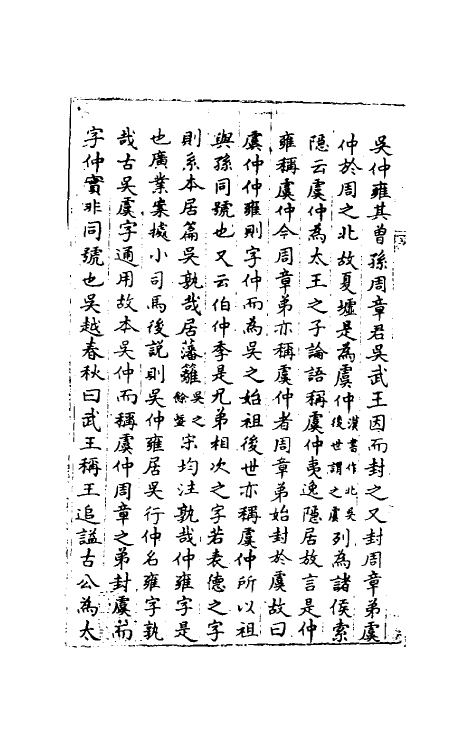 吳仲雍其曾孫周章君吳武王因而封之又封周章弟虞
仲於周之北故夏墟是為虞仲漢書作北吳後世謂之虞列為諸侯索
隱云虞仲為太王之子論語稱虞仲夷逸隱居放言是仲
雍稱虞仲今周章弟亦稱虞仲者周章弟始封於虞故曰
虞仲仲雍則字仲而為吳之始祖後世亦稱虞仲所以祖
與孫同號也又云伯仲季是兄弟相次之字若表德之字
則系本居篇吳孰哉居藩籬吳之餘暨宋均注孰哉仲雍字是
也廣業案據小司馬後說則吳仲雍居吳行仲名雍字孰
哉古吳虞字通用故本吳仲而稱虞仲周章之弟封虞而
字仲實非同號也吳越春秋曰武王稱王追諡古公為太